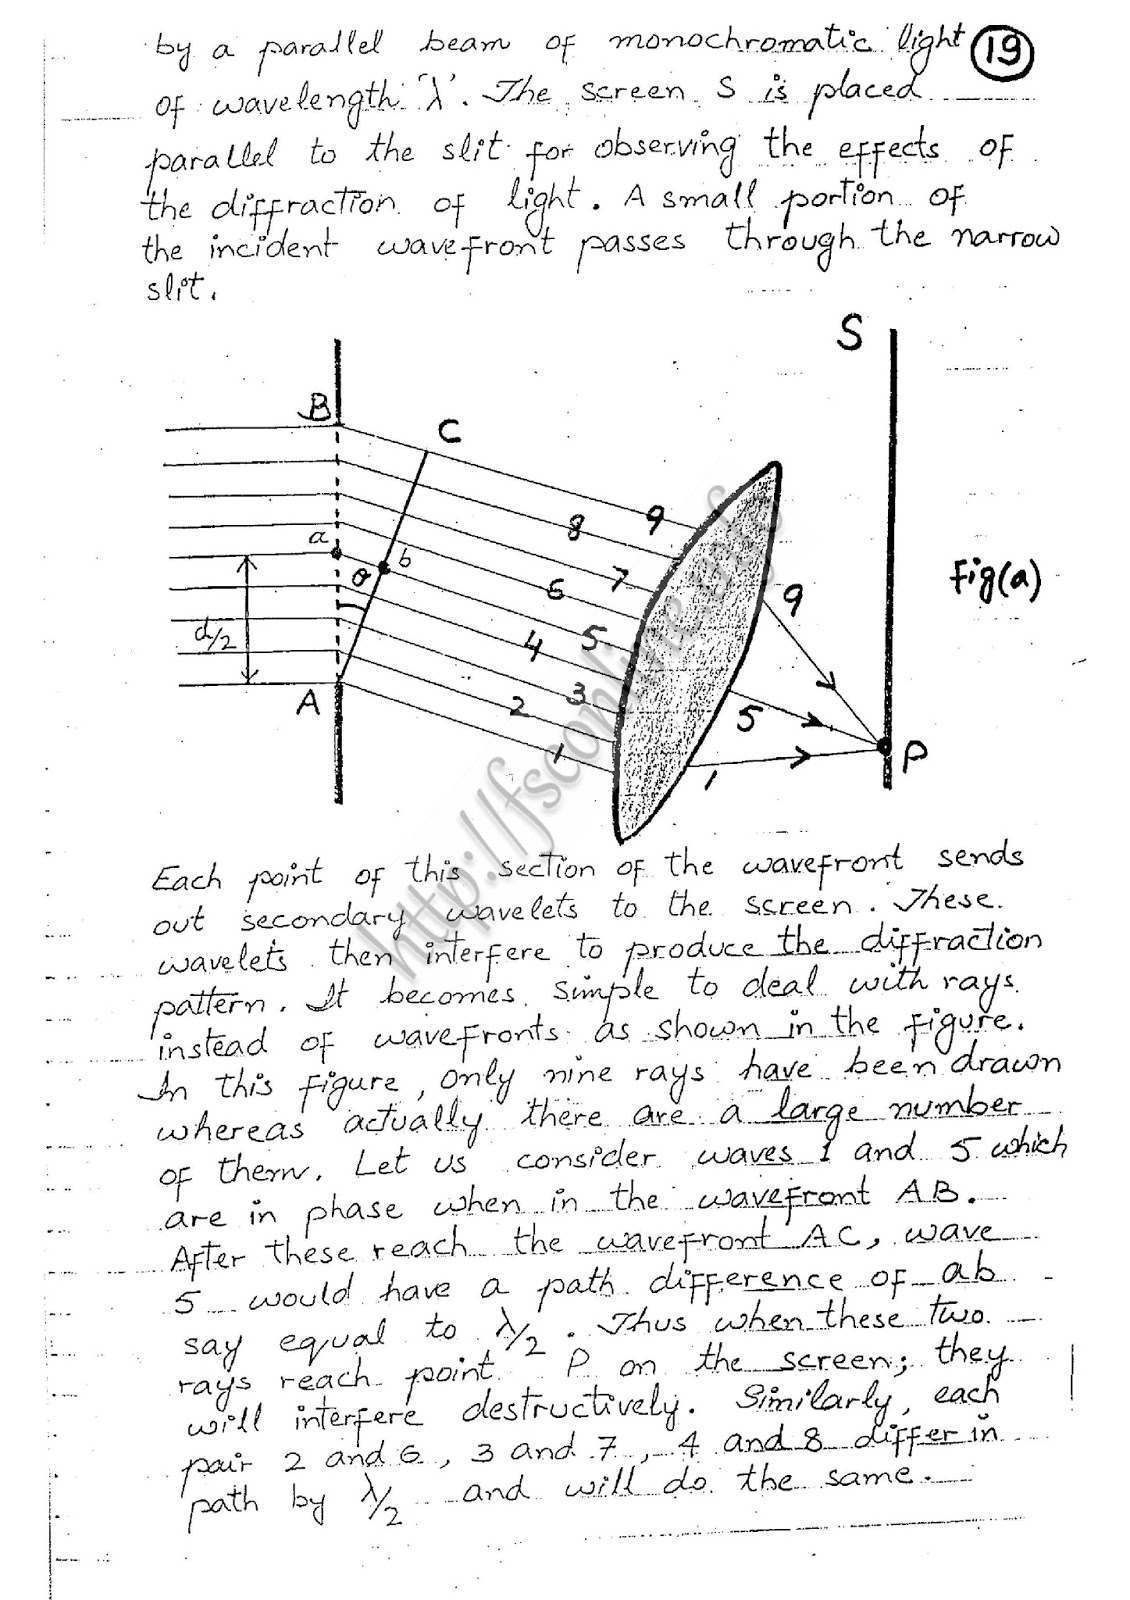 by a parallel beam of monochromatic light (19)
of wavelength 'λ'. The screen S is placed
parallel to the slit for observing the effects of
the diffraction of light. A small portion of
the incident wavefront passes through the narrow
slit.
S
B
C
9
8
a
b
θ
7
6
Fig(a)
9
5
d/2
4
3
A
2
5
1
P
1
http://fsconline.info
Each point of this section of the wavefront sends
out secondary wavelets to the screen. These
wavelets then interfere to produce the diffraction
pattern. It becomes simple to deal with rays
instead of wavefronts as shown in the figure.
In this figure, only nine rays have been drawn
whereas actually there are a large number
of them. Let us consider waves 1 and 5 which
are in phase when in the wavefront AB.
After these reach the wavefront AC, wave
5 would have a path difference of ab
say equal to λ/2. Thus when these two
rays reach point P on the screen; they
will interfere destructively. Similarly, each
pair 2 and 6, 3 and 7, 4 and 8 differ in
path by λ/2 and will do the same.